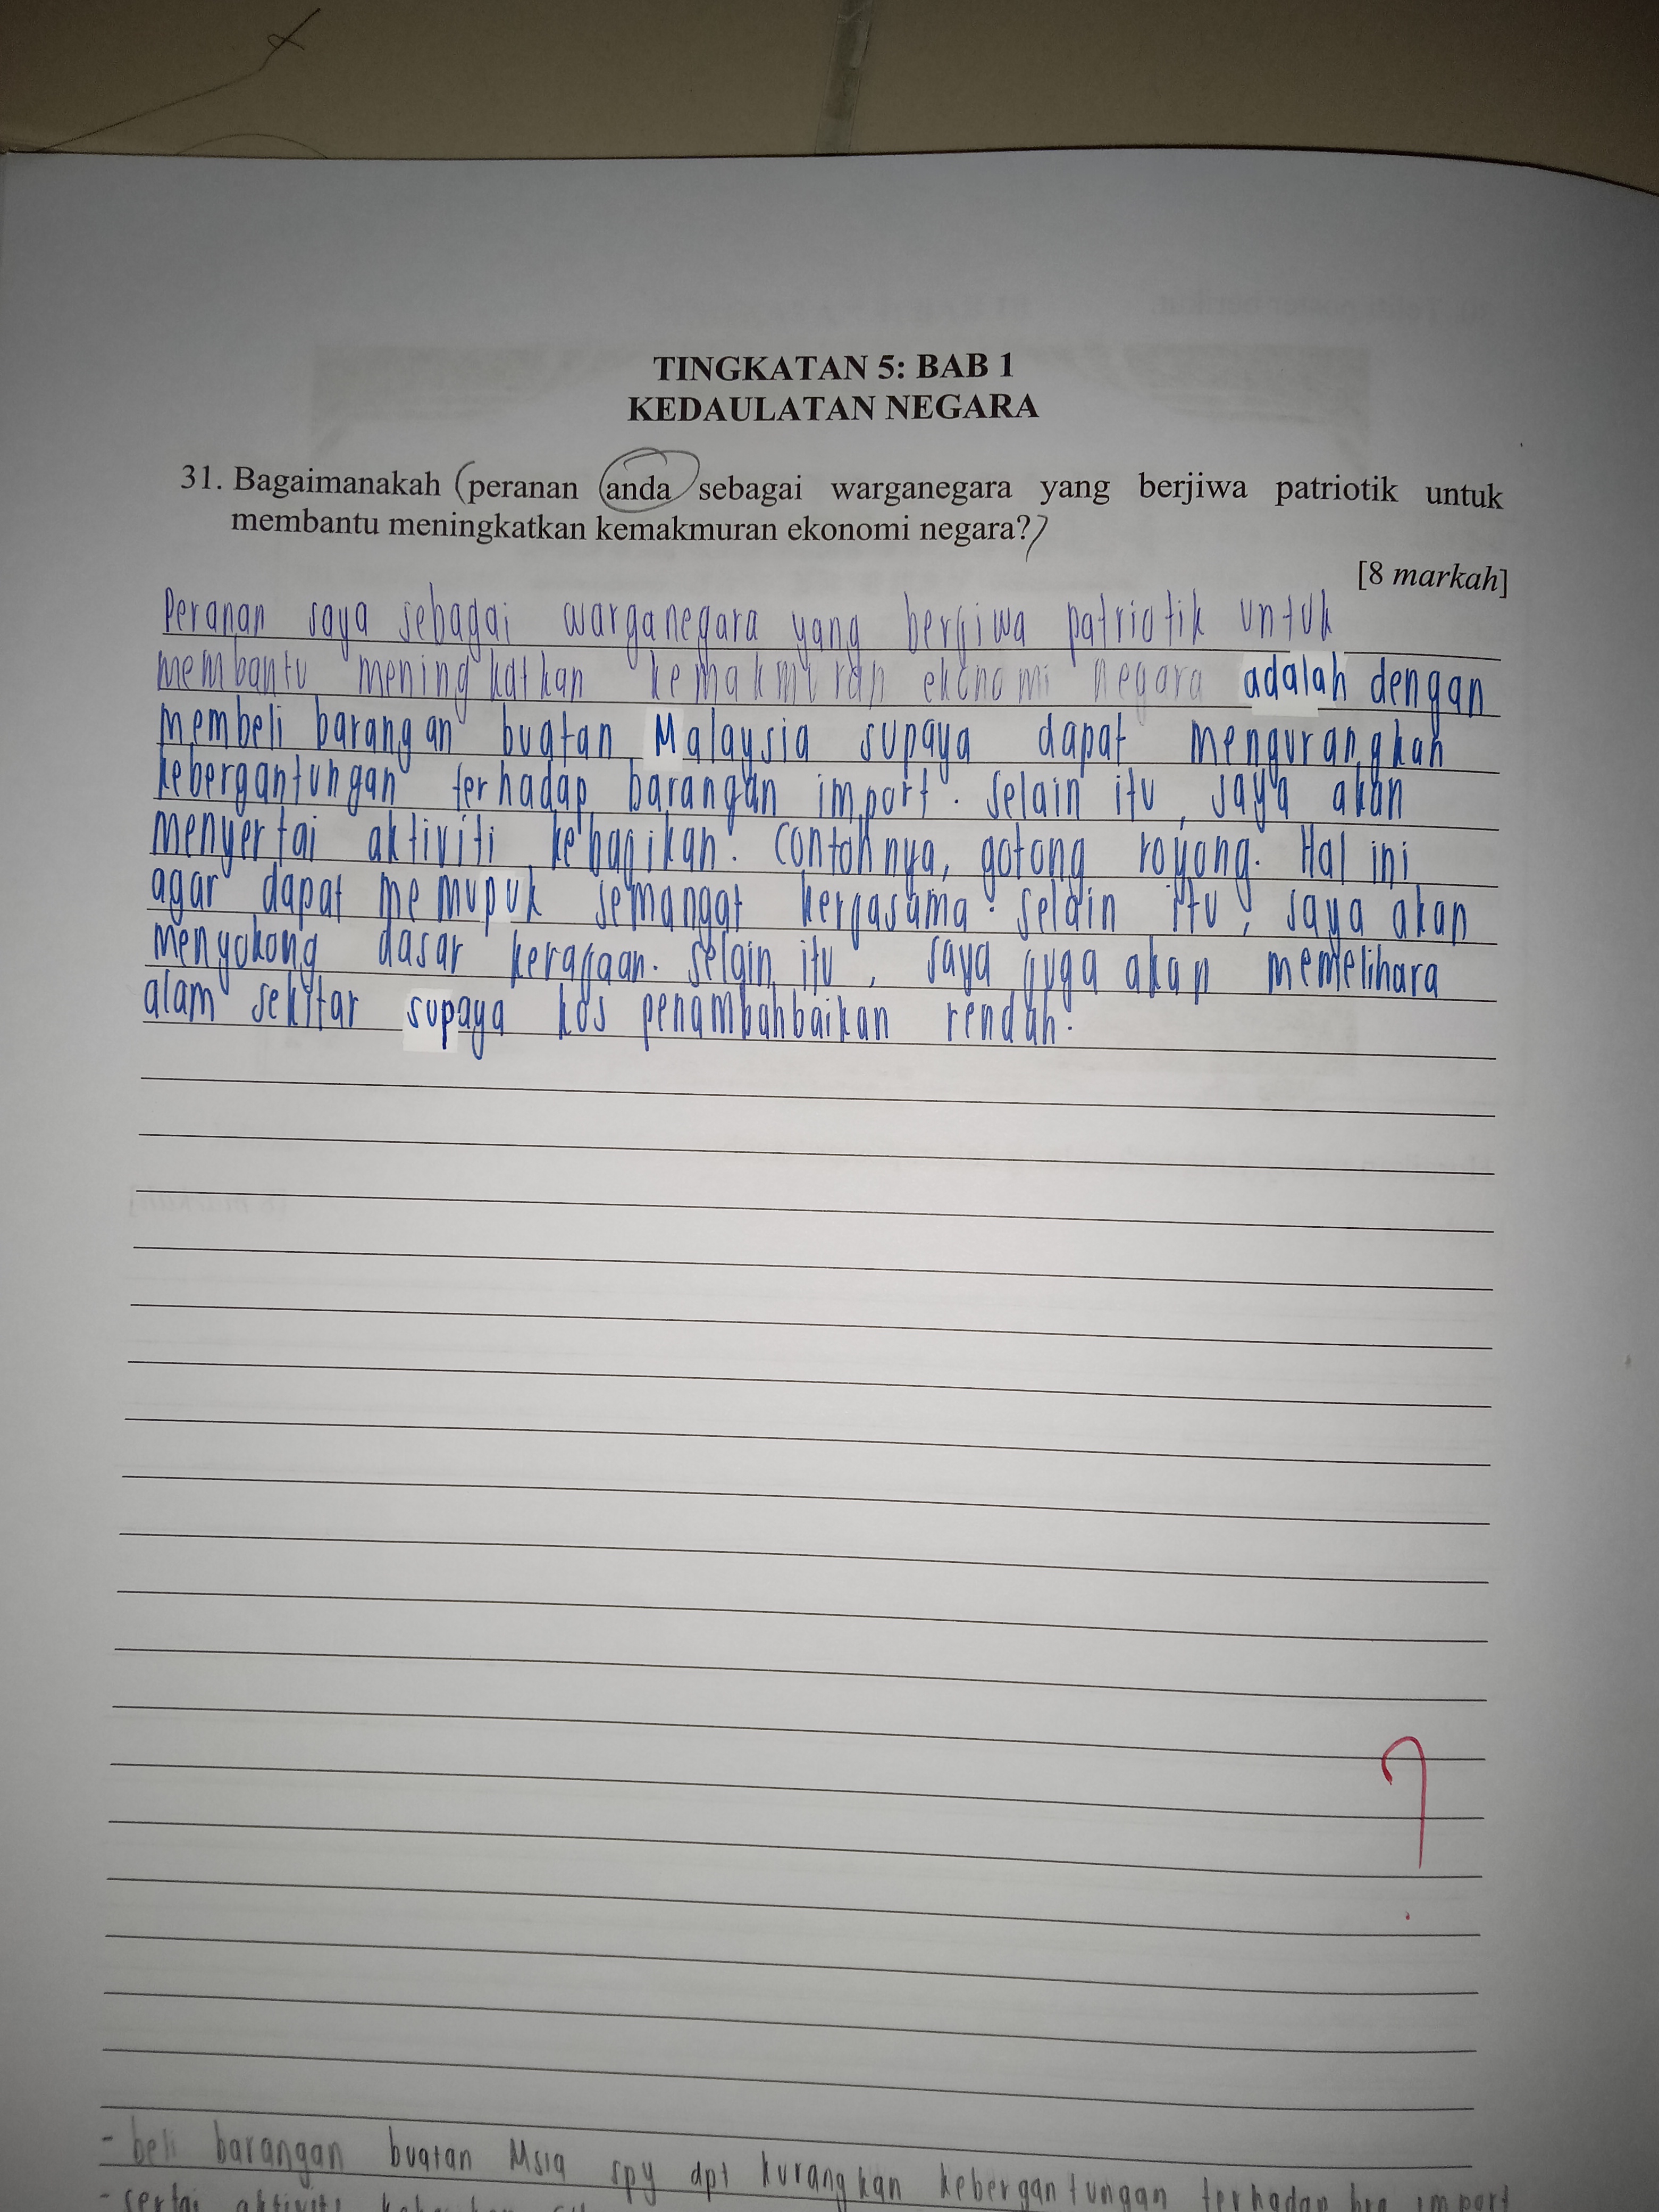 TINGKATAN 5: BAB 1
KEDAULATAN NEGARA
31. Bagaimanakah (peranan anda sebagai warganegara yang berjiwa patriotik untuk
membantu meningkatkan kemakmuran ekonomi negara?)
[8 markah]
Peranan saya sebagai warganegara yang berjiwa patriotik untuk
membantu meningkatkan kemakmuran ekonomi negara adalah dengan
membeli barangan buatan Malaysia supaya dapat mengurangkan
kebergantungan terhadap barangan import. Selain itu, saya akan
menyertai aktiviti kebajikan. Contohnya, gotong royong. Hal ini
agar dapat memupuk semangat kerjasama. Selain itu, saya akan
menyokong dasar kerajaan. Selain itu, saya juga akan memelihara
alam sekitar supaya kos penambahbaikan rendah.
- beli barangan buatan Msia spy dpt kurangkan kebergantungan terhadap brg import
- sertai aktiviti